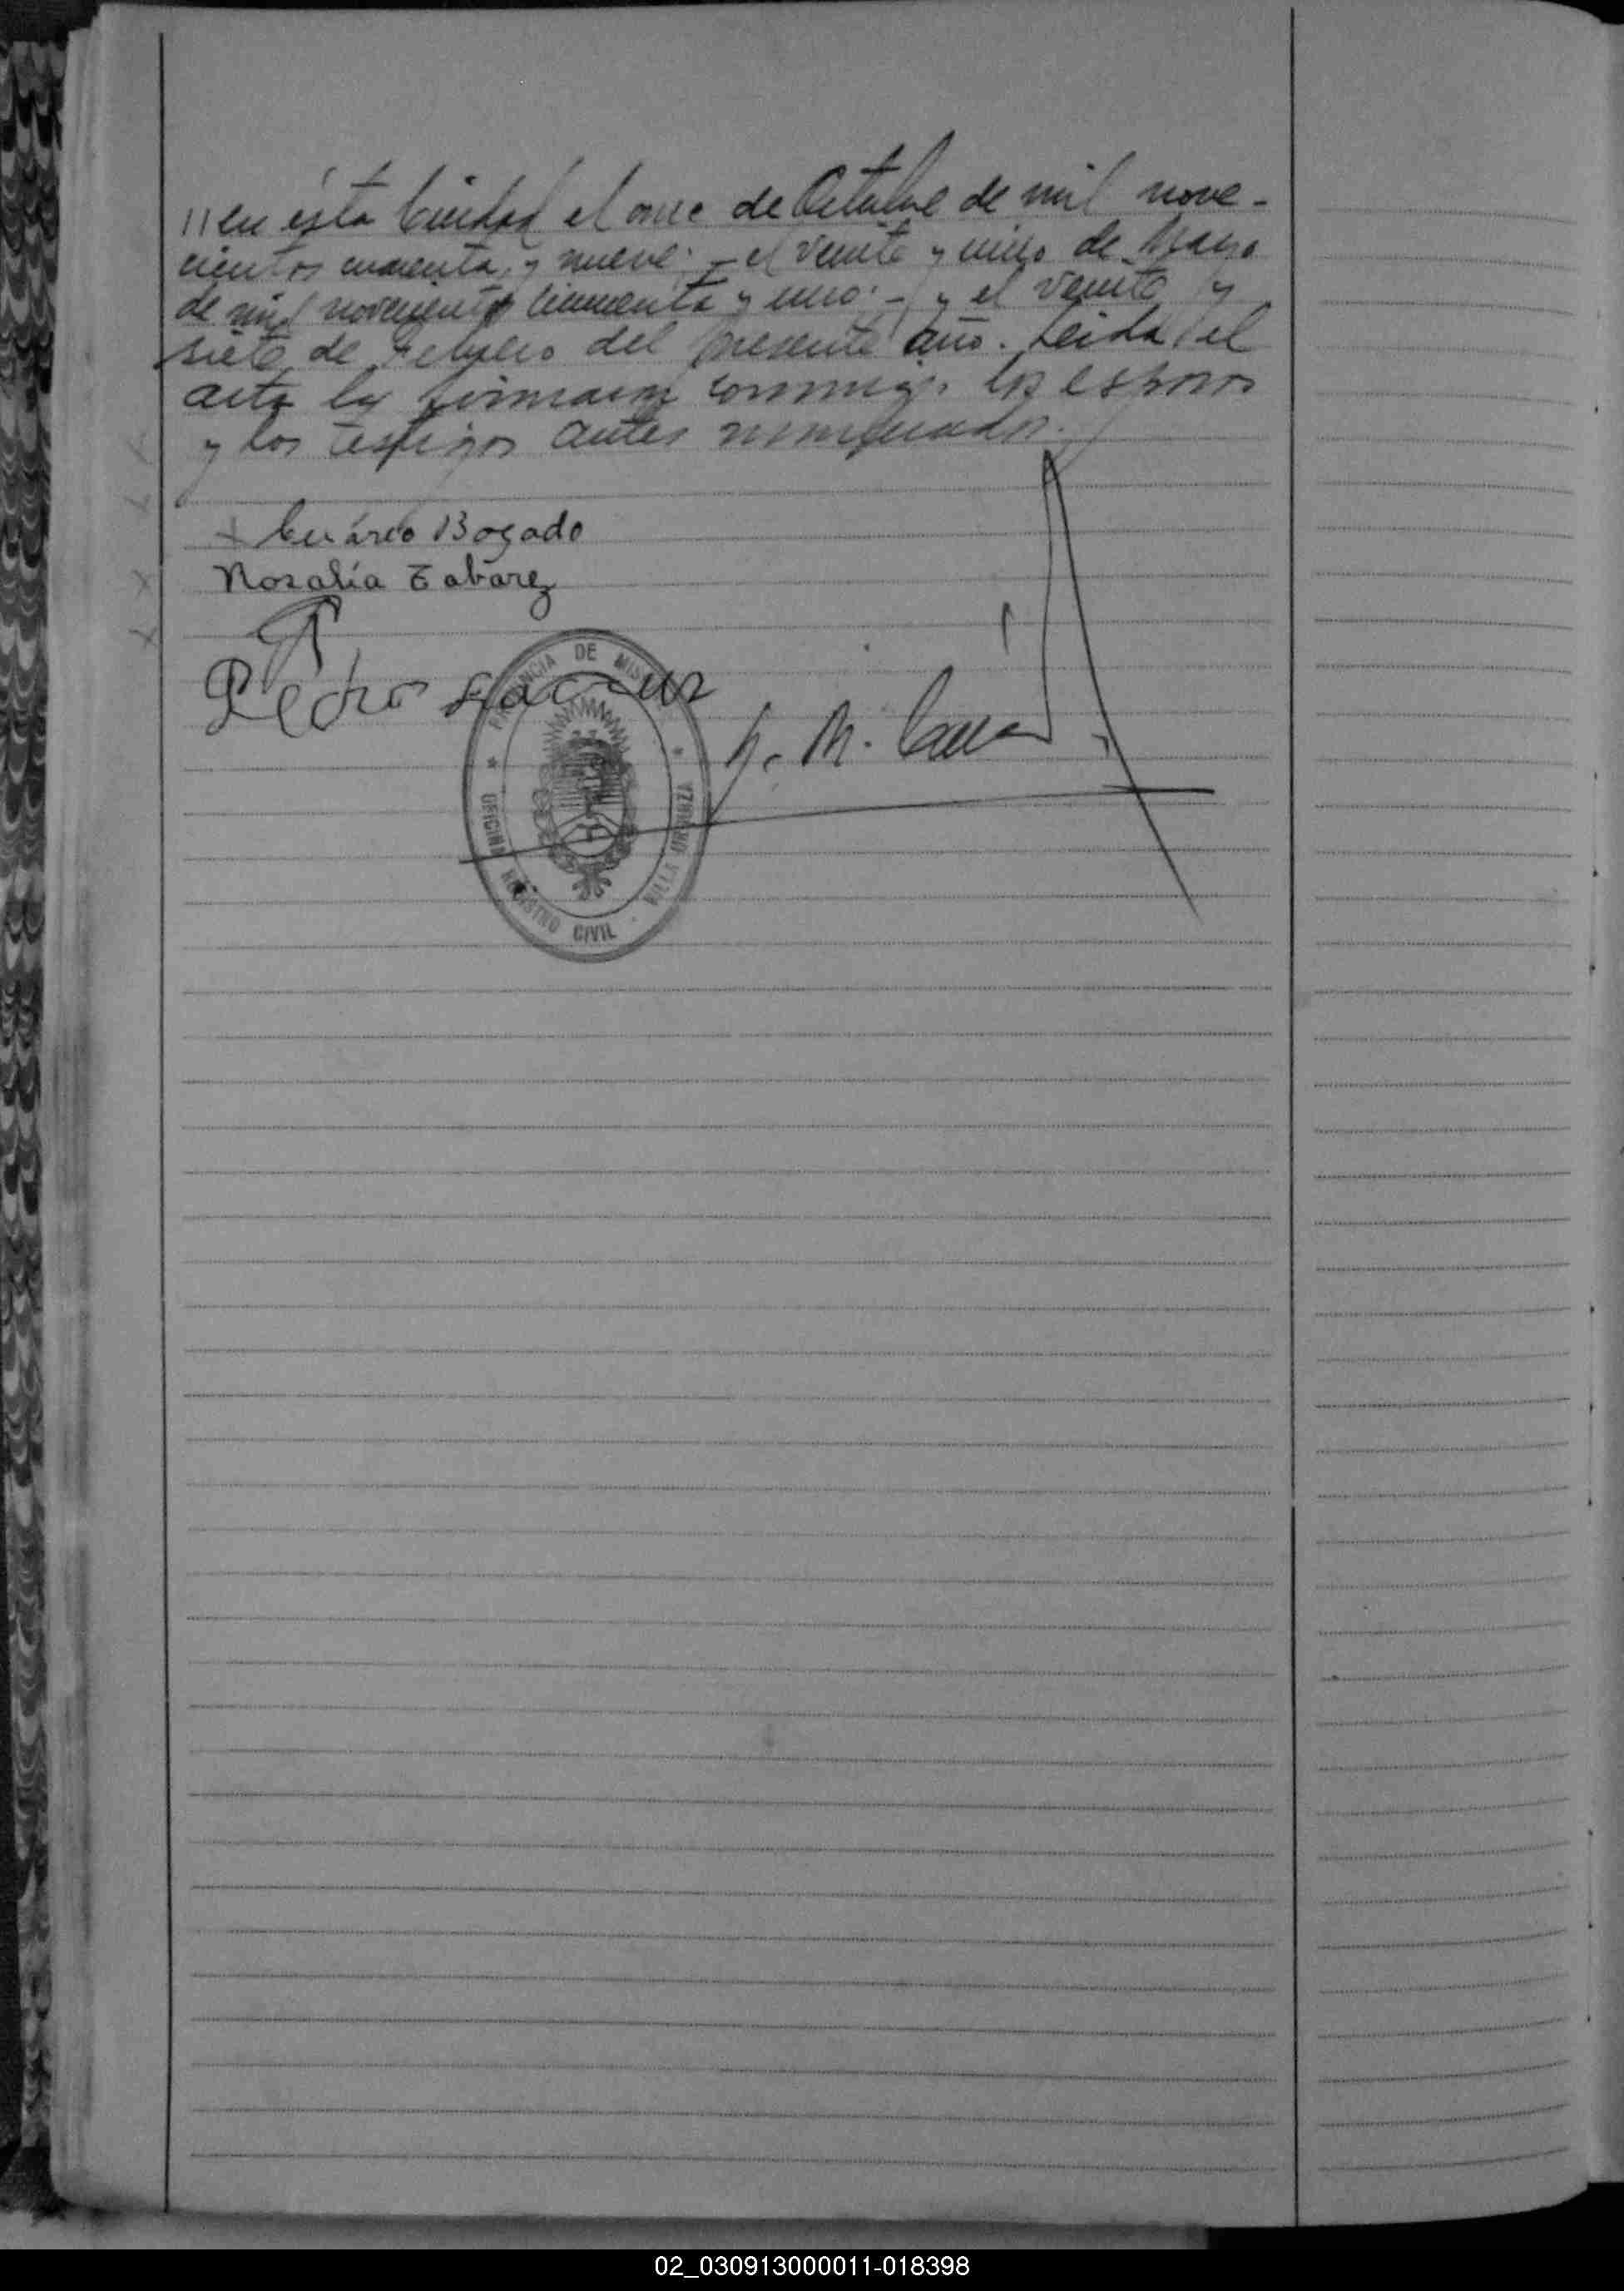 // en ésta Ciudad el once de Octubre de mil nove-
cientos cuarenta y nueve; - el veinte y uno de Mayo
de mil novecientos cincuenta y uno; - y el veinte y
siete de Febrero del presente año. Leida el
acta la firmaron conmigo los esposos
y los testigos antes nombrados.
Bogado
Rosalía Tabarez
Pedro
PROVINCIA DE MISIONES
OFICINA REGISTRO CIVIL - VILLA URQUIZA
02_030913000011-018398